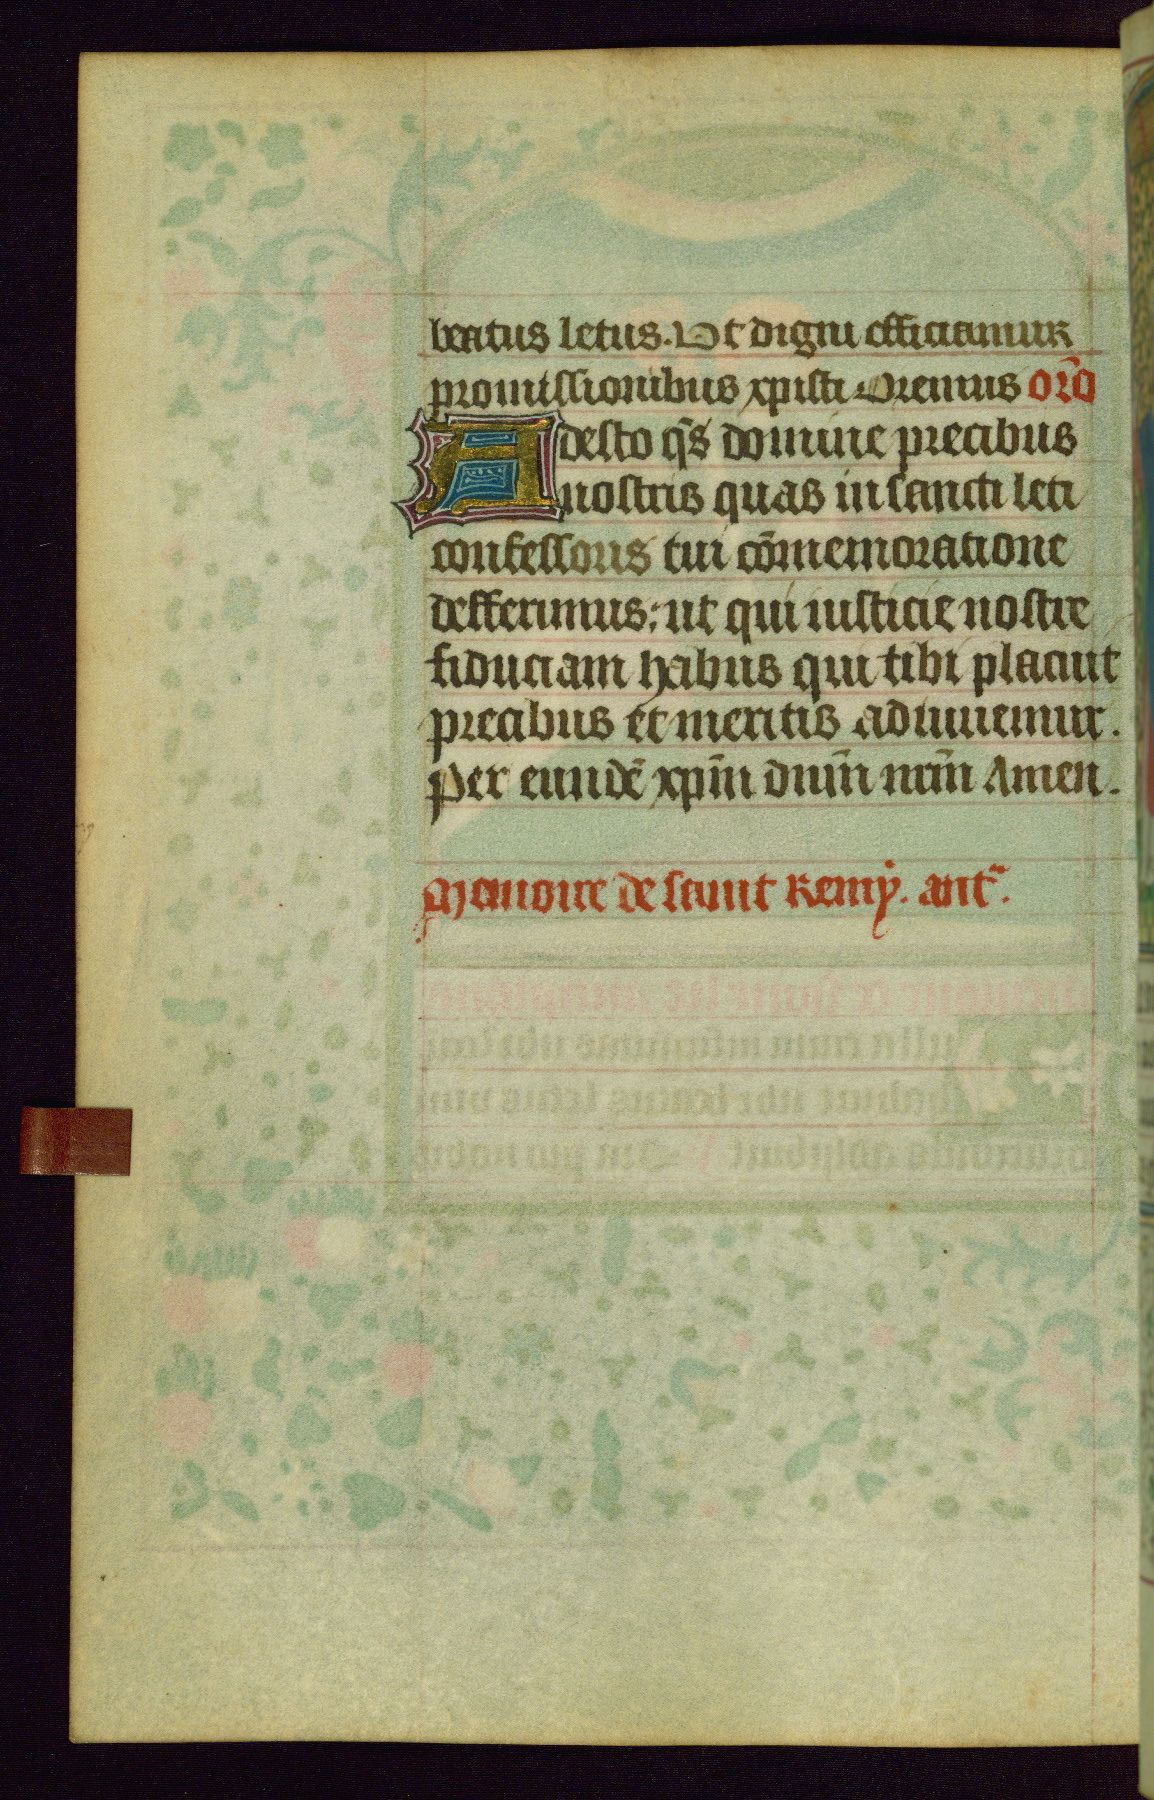 beatus letus. Ut digni efficiamur
promissionibus xpisti Oremus or̄o
Adesto q̄s domine precibus
nostris quas in sancti leti
confessoris tui cōmemoratione
defferimus: ut qui iusticie nostre
fiduciam habus qui tibi placuit
precibus et meritis adiuuemur.
Per eundē xp̄m dn̄m nr̄m Amen.
Memoire de saint Remy. antᵃ.